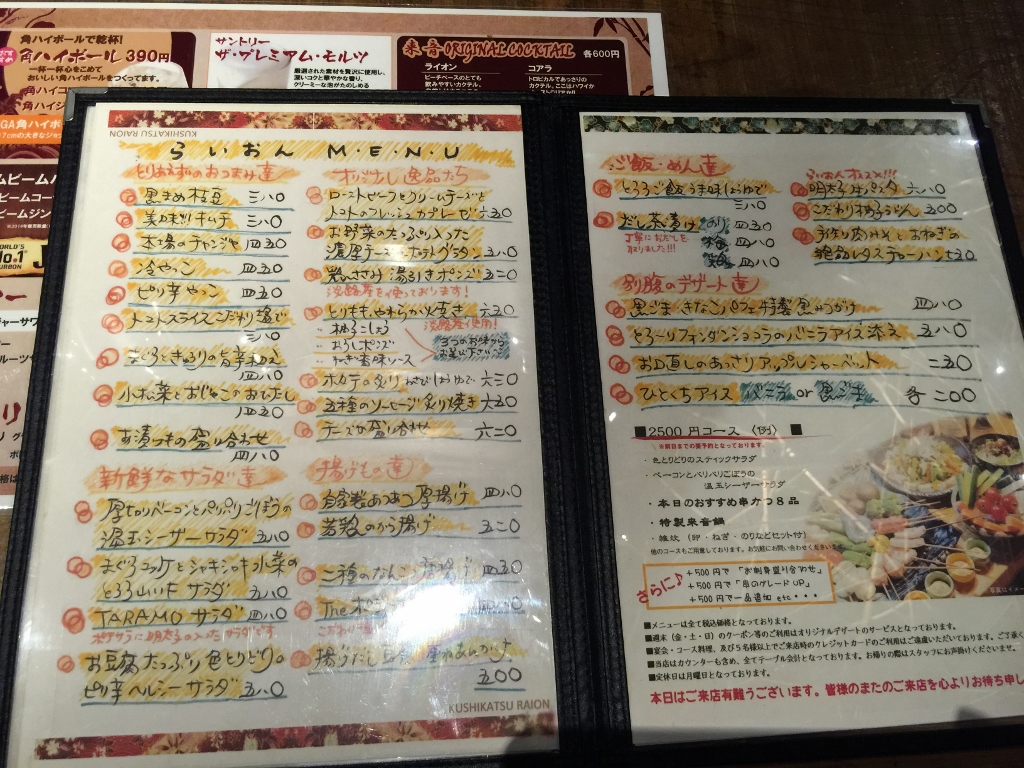 角ハイボールで乾杯!
角ハイボール 390円
一杯一杯心をこめて
おいしい角ハイボールをつくってます。
サントリー
ザ・プレミアム・モルツ
厳選された素材を贅沢に使用し、
深いコクと華やかな香り、
クリーミーな泡がたのしめる
来・音・ORIGINAL COCKTAIL 各600円
ライオン
ピーチベースのとても
飲みやすいカクテル。
コアラ
トロピカルであっさりの
カクテル、ここはハワイか
KUSHIKATSU RAION
らいおん M・E・N・U
とりあえずのおつまみ達
黒まめ枝豆 三八〇
三八〇
本場のチャンジャ 四五〇
冷やっこ 四五〇
ピリ辛やっこ 四五〇
トマトスライスこだわり塩で
三八〇
まぐろときゅうりの旨辛和え
四八〇
小松菜とおじゃこのおひたし
四五〇
お漬けもの盛り合わせ
四八〇
新鮮なサラダ達
厚切りベーコンとパリパリごぼうの
温玉シーザーサラダ 五八〇
まぐろユッケとシャキシャキ水菜の
とろろ サラダ 五八〇
TARAMO サラダ 四八〇
ポテサラに明太子の入ったサラダです
お豆腐たっぷり色とりどりの
ピリ辛ヘルシーサラダ 五八〇
オリジナル逸品たち
ローストビーフとクリームチーズと
トマトのフレッシュカプレーゼ 六五〇
お野菜のたっぷり入った
濃厚チーズのポテトグラタン 五八〇
鶏ささみ 湯引きポン酢 五二〇
淡路産を使っております!
とりもも やわらか火焼き 六五〇
柚子こしょう
おろしポン酢
ねぎ香味ソース
淡路産使用!
3つのお味から
お選び下さい
ホタテの炙り わさびしょうゆで 六三〇
五種のソーセージ炙り焼き 六五〇
チーズの盛り合わせ 六二〇
揚げもの達
自家製あつあつ厚揚げ 四八〇
若鶏のから揚げ 五二〇
二種のなんこつ唐揚げ 四五〇
The
揚げだし豆腐
五〇〇
KUSHIKATSU RAION
ご飯・めん達
とろろご飯 うま味しょうゆで
三八〇
だし茶漬け のり 四五〇
梅 四八〇
鮭 四八〇
丁寧におだしを
取りました!!!
らいおんオススメ!!!
明太子パスタ 六八〇
こだわり柚子うどん 五〇〇
手作り肉みそとおねぎの
絶品レタスチャーハン 七五〇
別腹のデザート達
黒ごま きなこパフェ 特製黒みつがけ 四八〇
とろ〜りフォンダンショコラのバニラアイス添え 五八〇
お口直しのあっさりアップルシャーベット 二五〇
ひとくちアイス バニラ or 黒ごま 各二〇〇
■2500円コース〈例〉■
※前日までの要予約となっております。
・色とりどりのスティックサラダ
・ベーコンとパリパリごぼうの
温玉シーザーサラダ
・本日のおすすめ串かつ8品
・特製来音鍋
・雑炊(卵・ねぎ・のりなどセット付)
他のコースもご用意しております。お気軽にお問い合わせくださいませ。
さらに♪
+500円で「お刺身盛り合わせ」
+500円で「串のグレードUP」
+500円で一品追加 etc・・・
■メニューは全て税込価格となっております。
■週末(金・土・日)のクーポン等のご利用はオリジナルデザートのサービスとなっております。
■宴会・コース料理、及び5名様以上でご来店時のクレジットカードのご利用はご遠慮いただいております。ご了承く
■当店はカウンターも含め、全てテーブル会計となっております。お帰りの際はスタッフにお声掛けくださいませ。
■定休日は月曜日となっております。
本日はご来店有難うございます。皆様のまたのご来店を心よりお待ち申し